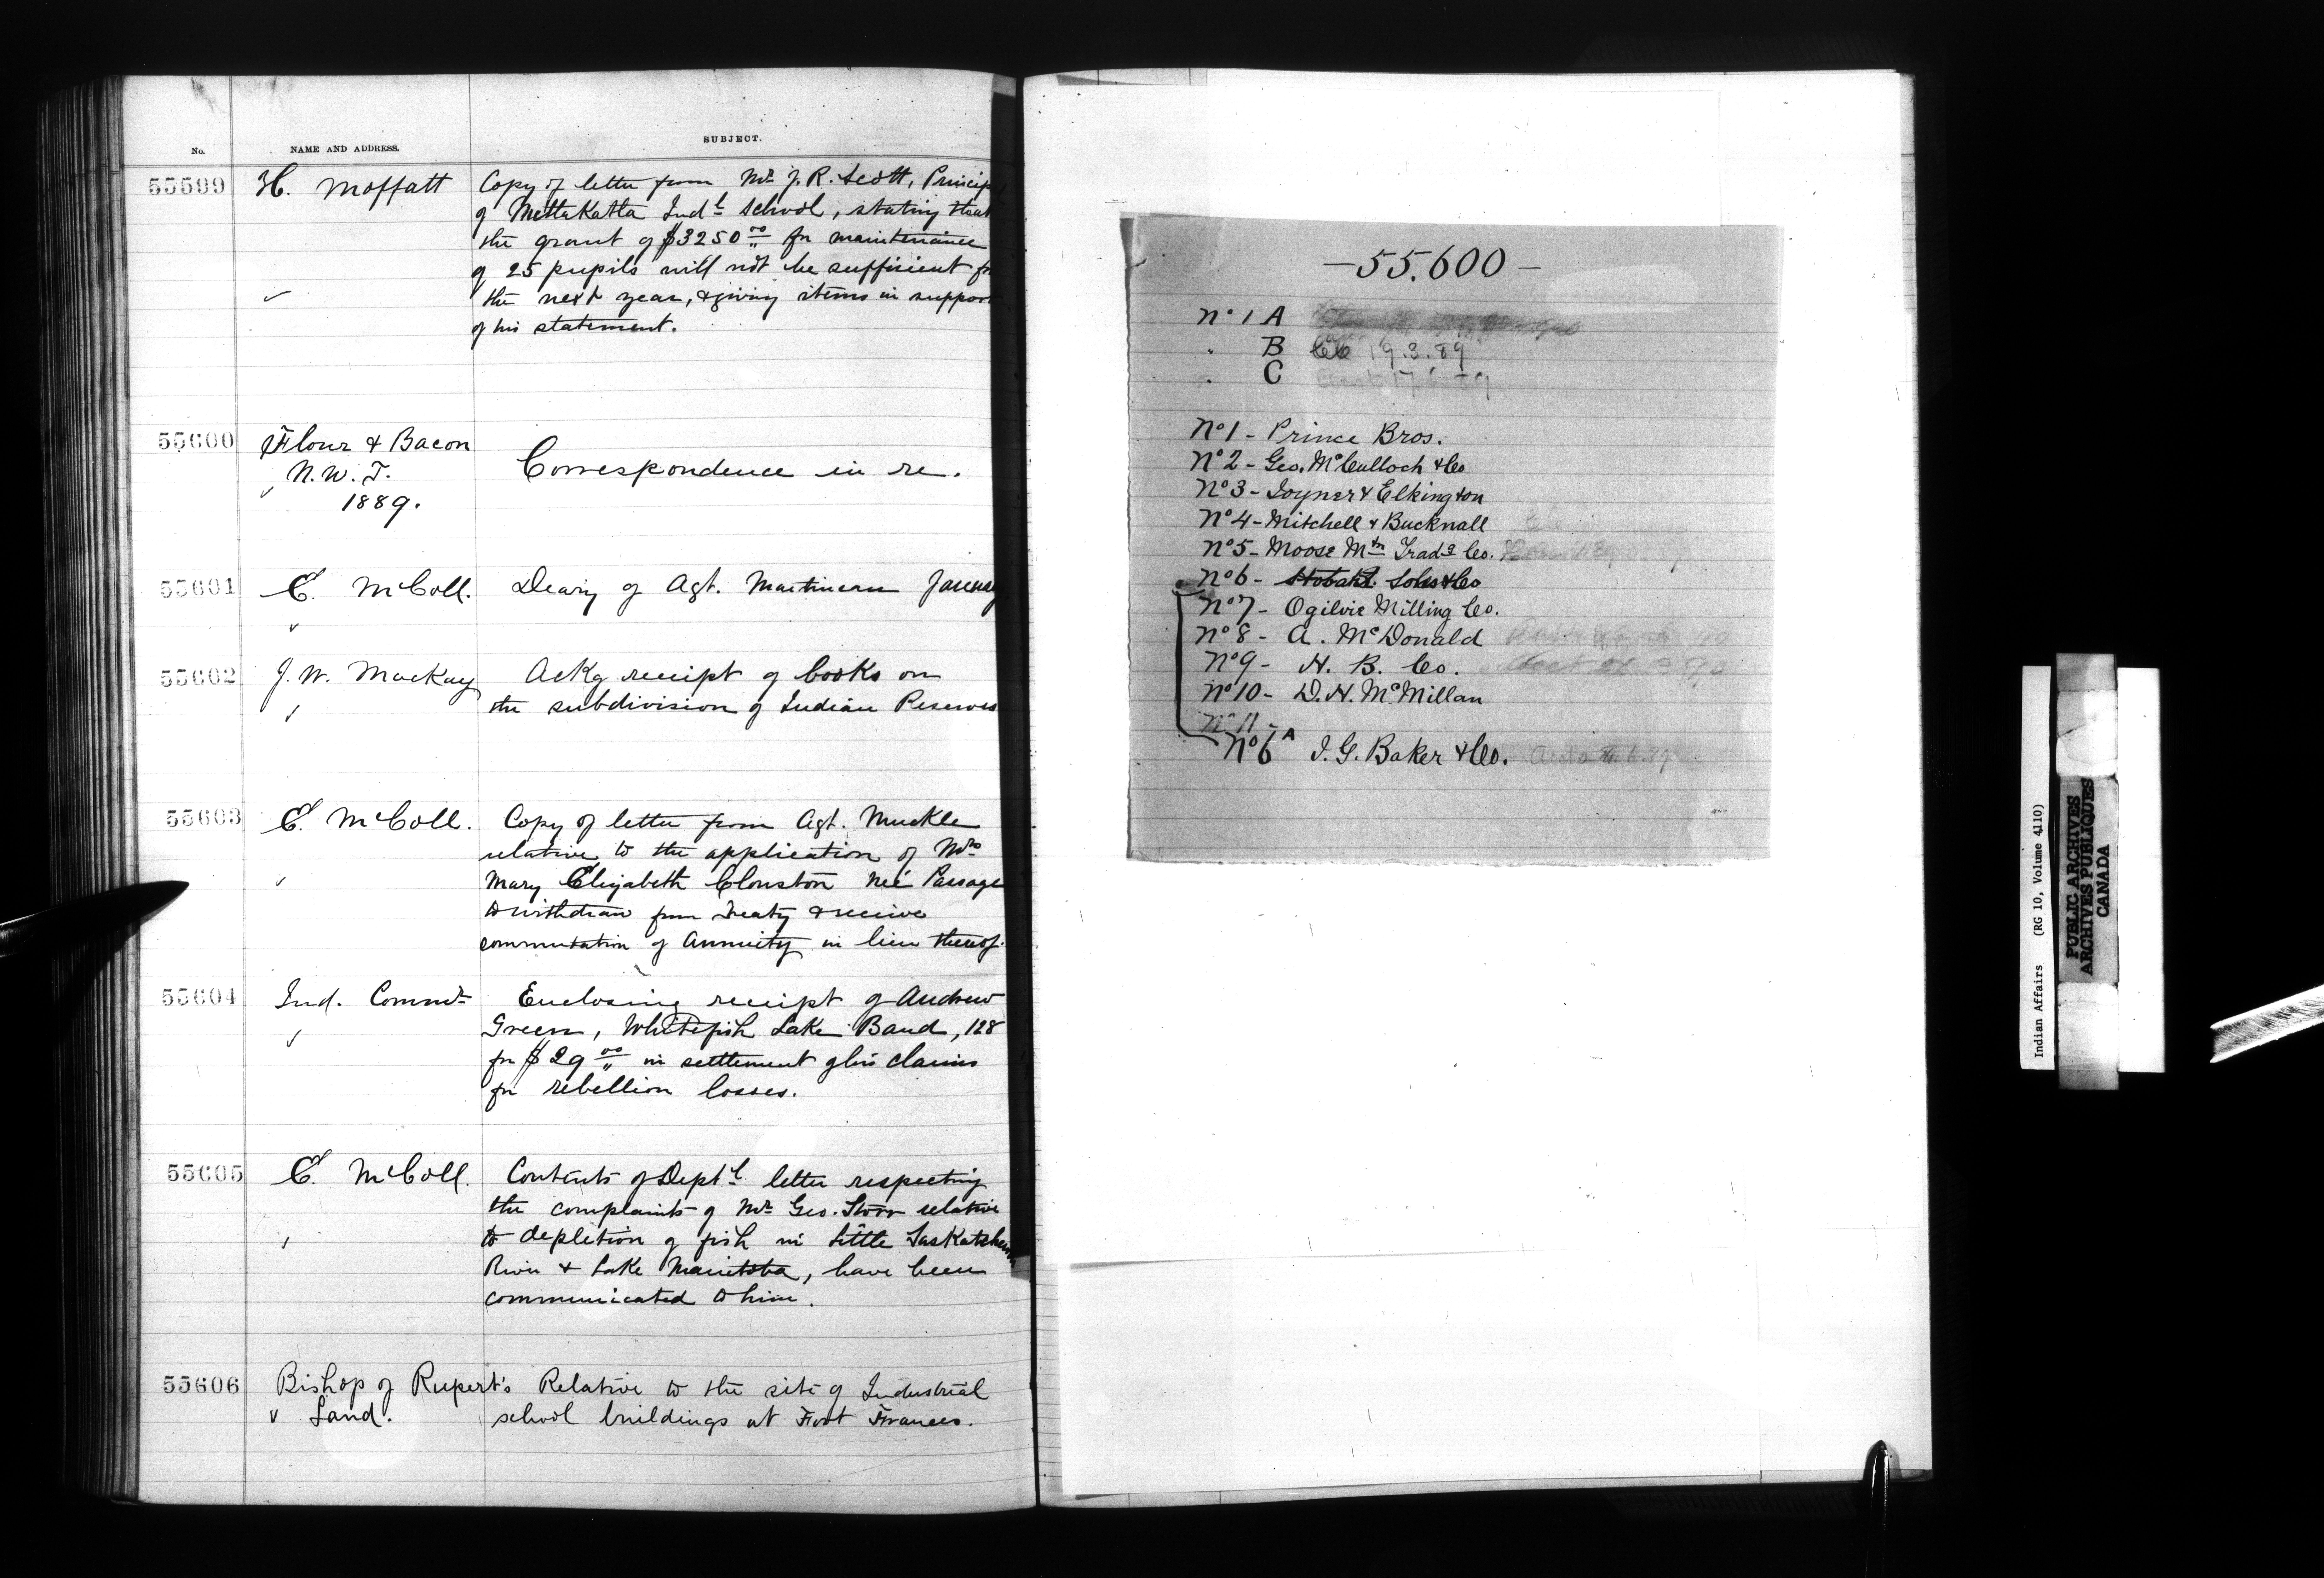 No. NAME AND ADDRESS. SUBJECT.
55599 H. Moffatt Copy of letter from Mr J. R. Scott, Princip
of Mettakatla Indl School, stating that
the grant of $3250 00 for maintenance
of 25 pupils will not be sufficient for
the next year, & giving items in support
of his statement.
55600 Flour & Bacon
N. W. T.
1889.
Correspondence in re.
55601 E. McColl. Deary of Agt. Martineau January
55602 J. W. Mackay Ackg receipt of books on
the subdivision of Indian Reserves
55603 E. McColl. Copy of letter from Agt. Muckle
relative to the application of Mrs
Mary Elizabeth Clouston neé Passage
to withdraw from Treaty & receive
commutation of Annuity in lieu thereof.
55604 Ind. Commr Enclosing receipt of Andrew
Green, Whitefish Lake Band, 128
for $29 00 in settlement of his claims
for rebellion losses.
55605 E. McColl. Contents of Deptl letter respecting
the complaints of Mr Geo. Storr relative
to depletion of fish in Little Saskatchewan
River & Lake Manitoba, have been
communicated to him.
55606 Bishop of Rupert's
Land.
Relative to the site of Industrial
school buildings at Fort Frances.
—55.600—
No 1 A
" B 19.3.89
" C
No 1 - Prince Bros.
No 2 - Geo. McCulloch & Co
No 3 - Joyner & Elkington
No 4 - Mitchell & Bucknall
No 5 - Moose Mtn Tradg Co.
No 6 - Stobart Sons & Co
No 7 - Ogilvie Milling Co.
No 8 - A. McDonald
No 9 - H. B. Co.
No 10 - D. H. McMillan
No 11 -
No 6 A I. G. Baker & Co.
Indian Affairs (RG 10, Volume 4110)
PUBLIC ARCHIVES
ARCHIVES PUBLIQUES
CANADA